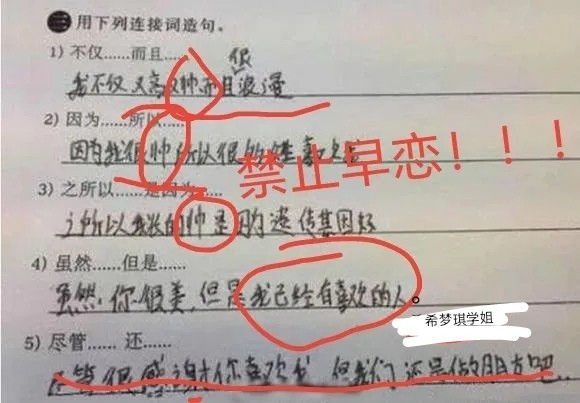 三 用下列连接词造句。
1) 不仅……而且……
很
我不仅又高又帅而且浪漫
2) 因为……所以……
因为我很帅所以很多女生喜欢
禁止早恋！！！
3) 之所以……是因为……
之所以我长的帅是因为遗传基因好
4) 虽然……但是……
虽然你很美，但是我已经有喜欢的人。
希梦琪学姐
5) 尽管…… 还……
尽管很感谢你喜欢我，但我们还是做朋友吧